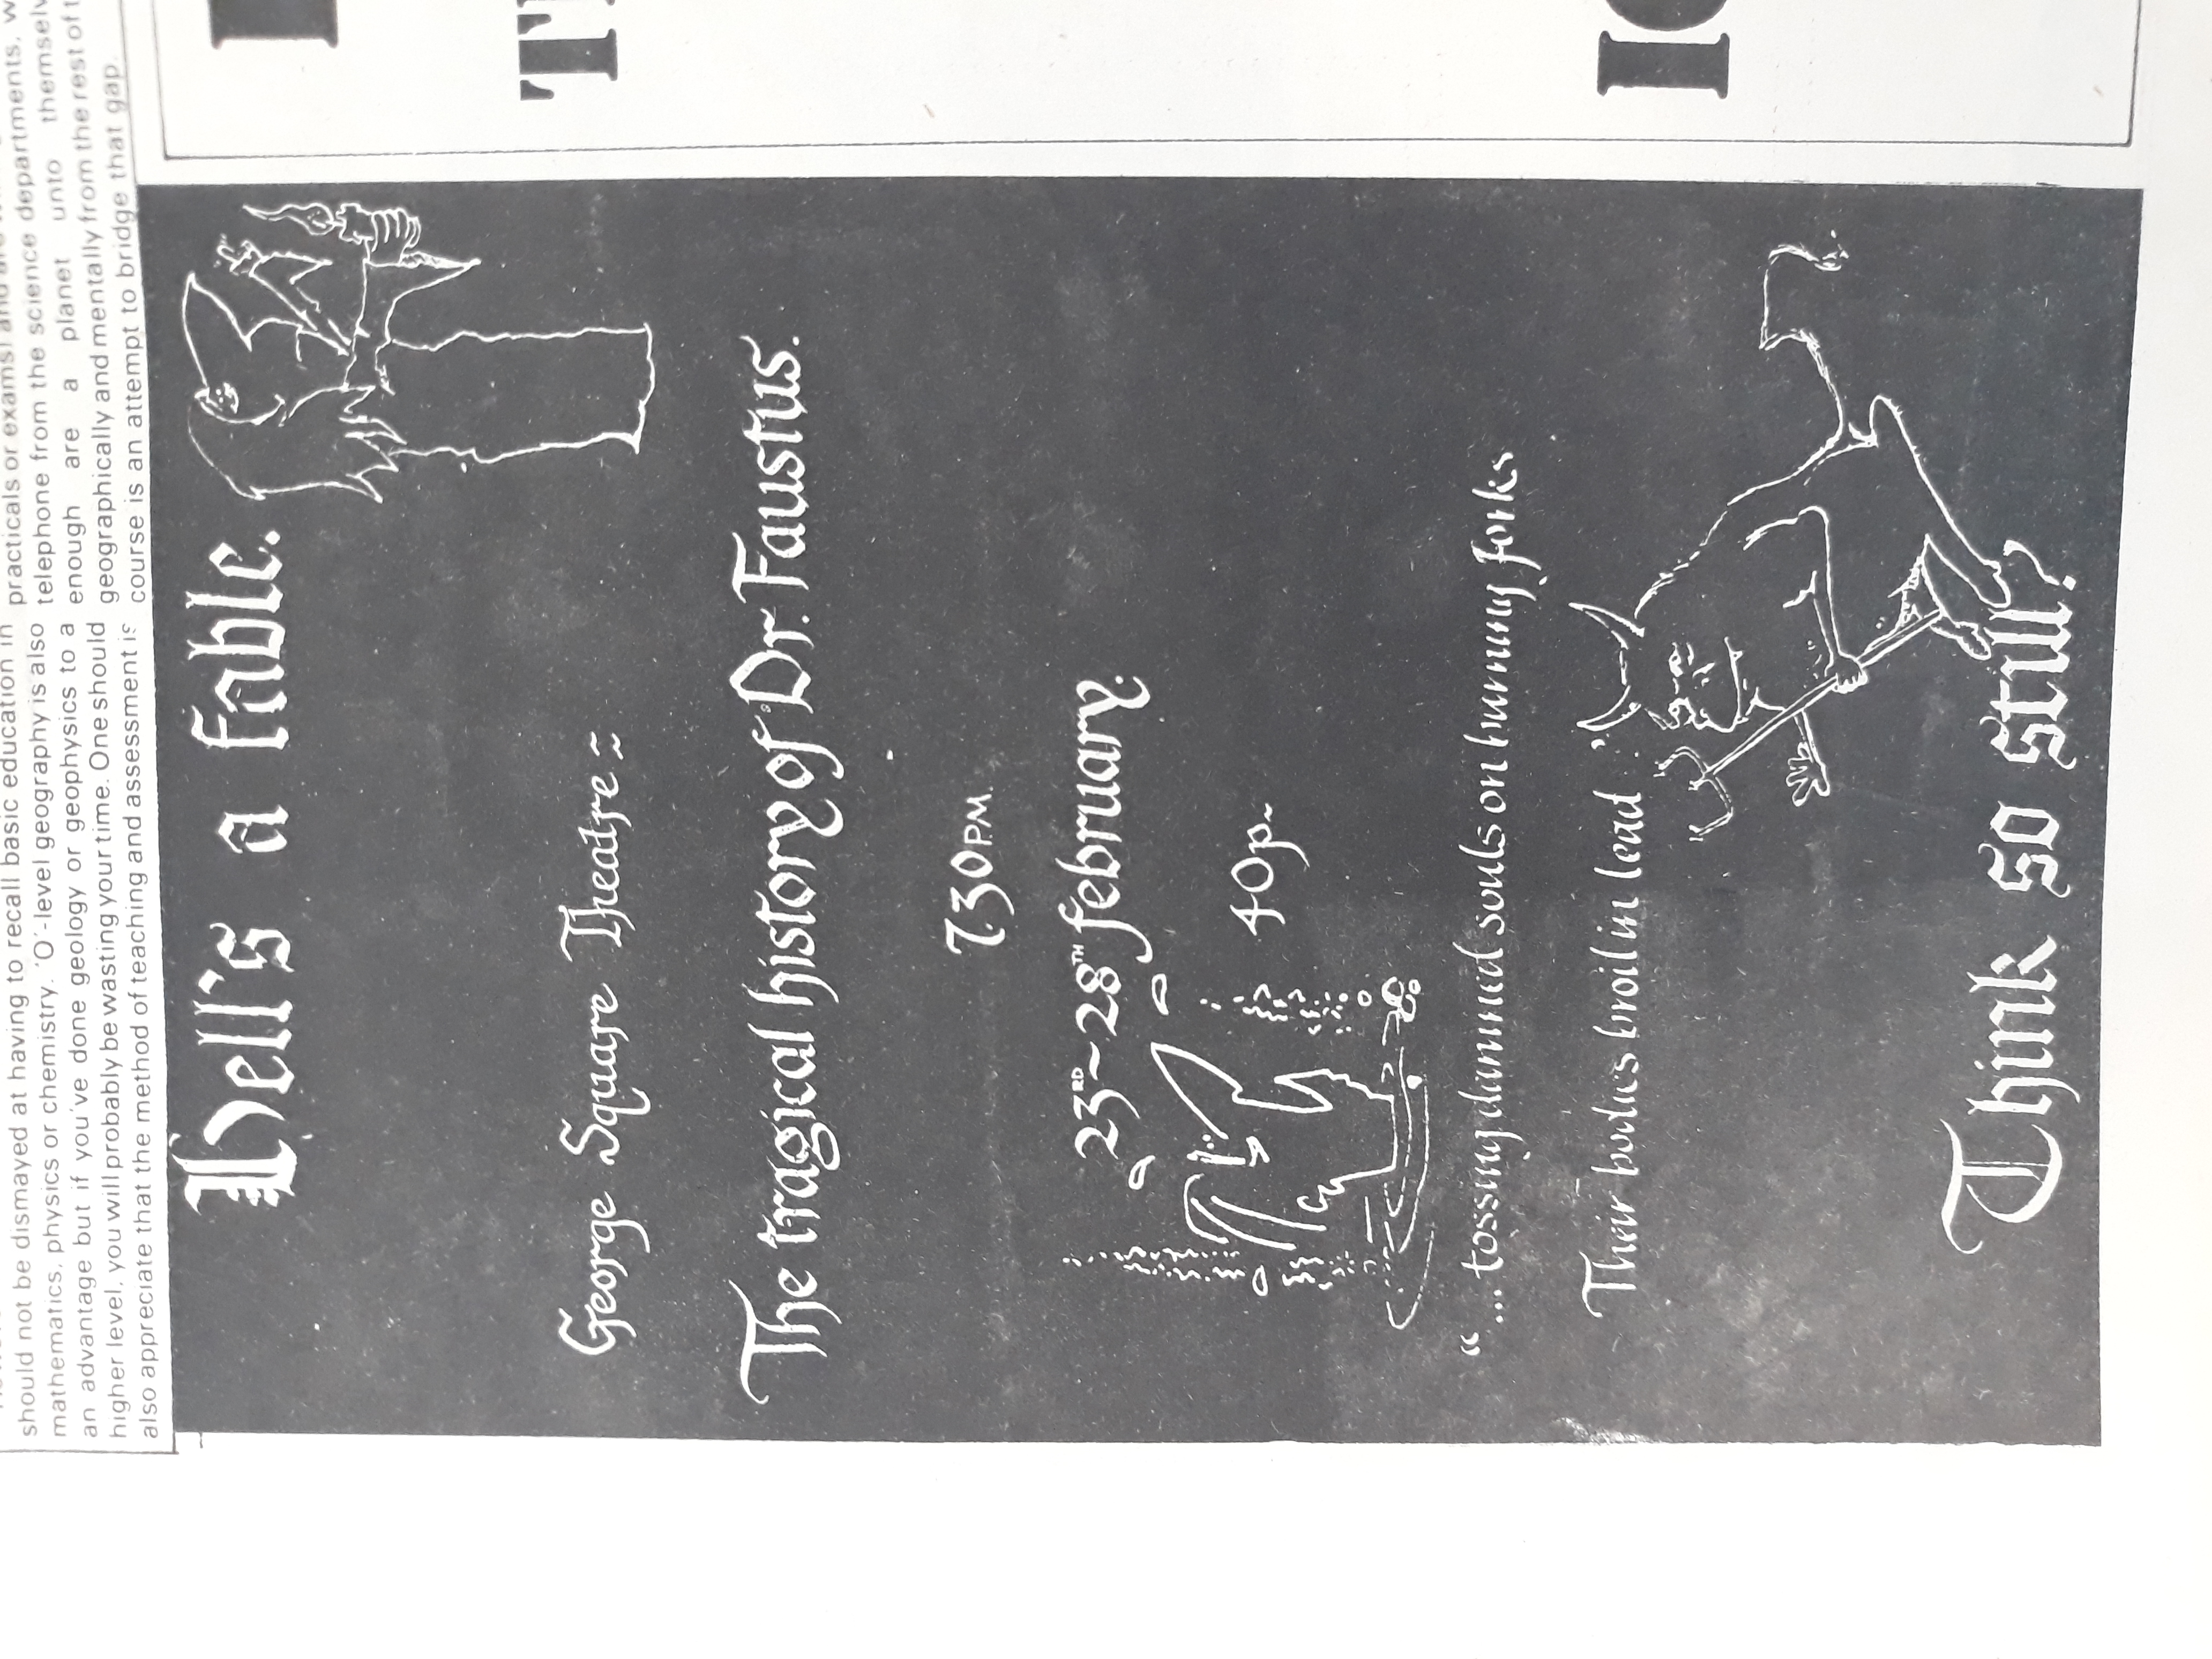 should not be dismayed at having to recall basic education in
mathematics, physics or chemistry. 'O'-level geography is also
an advantage but if you've done geology or geophysics to a
higher level, you will probably be wasting your time. One should
also appreciate that the method of teaching and assessment is
practicals or exams) and
telephone from the science departments,
enough are a planet unto
geographically and mentally from the rest of
course is an attempt to bridge that gap.
Hell's a fable.
George Square Theatre~
The tragical history of Dr. Faustus.
7.30 P.M.
23RD ~ 28TH february:
40p~
"... tossing damned souls on burning forks
Their bodies broil in lead."
Think so still?